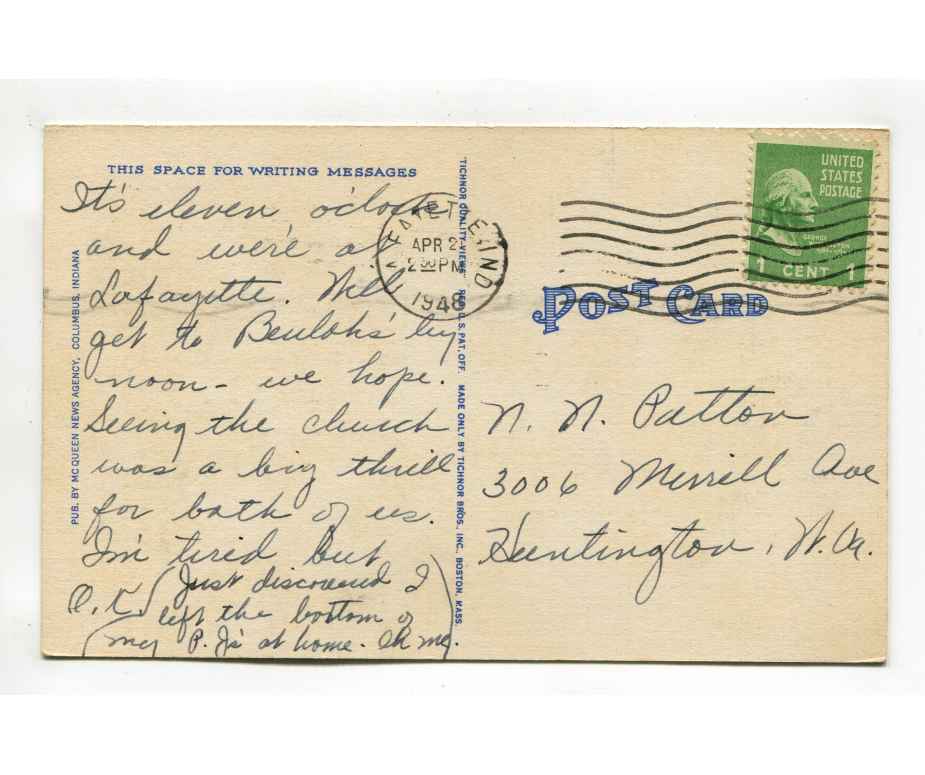 THIS SPACE FOR WRITING MESSAGES
It's eleven o'clock
and we're at
Lafayette. Will
get to Beulah's by
noon – we hope.
Seeing the church
was a big thrill
for both of us.
I'm tired but
O.K. (Just discovered I
left the bottom of
my P.J's at home. Oh me.)
PUB. BY MCQUEEN NEWS AGENCY, COLUMBUS, INDIANA
TICHNOR QUALITY VIEWS REG. U. S. PAT. OFF. MADE ONLY BY TICHNOR BROS., INC., BOSTON, MASS.
LAFAYETTE, IND
APR 2
2 30 PM
1948
UNITED
STATES
POSTAGE
GEORGE
WASHINGTON
1 CENT 1
POST CARD
N. N. Patton
3006 Merrill Ave
Huntington, W. Va.